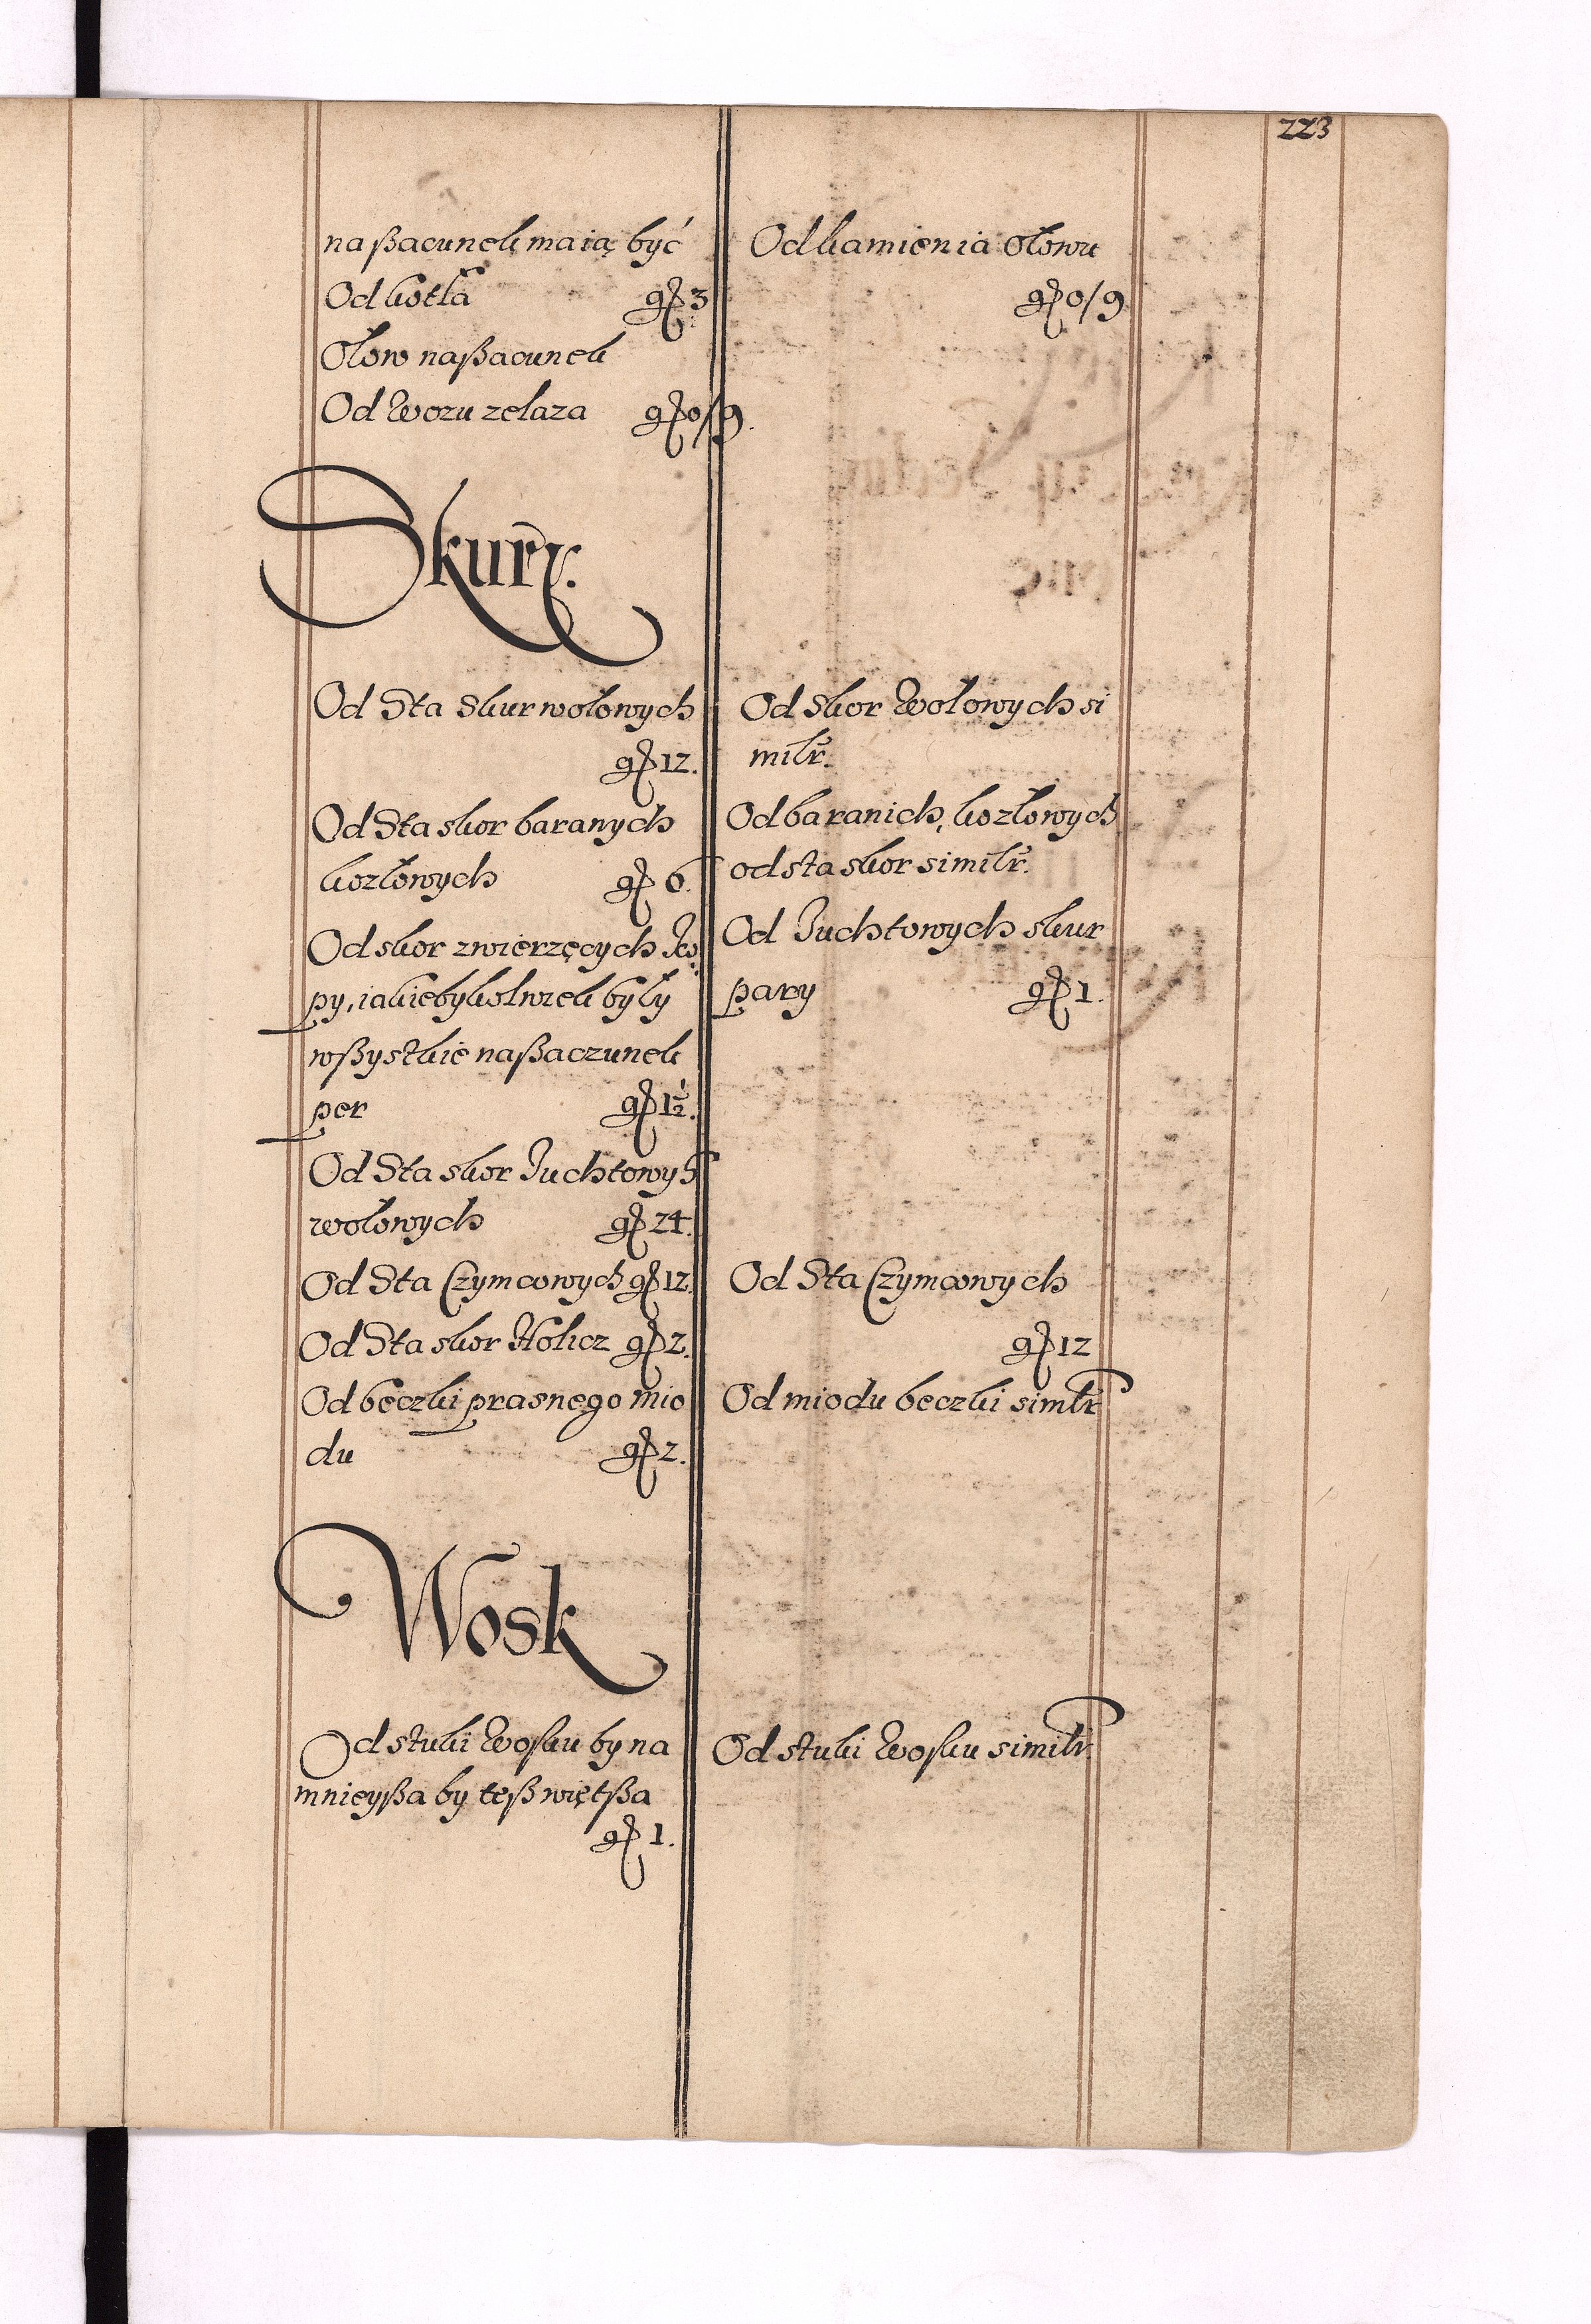 223
na ßacunek maią być
Od kotła gß 3
Ołow na ßacunek
Od Wozu zelaza gß 0/9.
Skury.
Od Sta skur wołowych
gß 12.
Od Sta skor baranych
kozłowych gß 6.
Od skor zwierzęcych
py, iakiebykolwiek były
wßystkie na ßaczunek
per gß 1½.
Od Sta skor Juchtowych
wołowych gß 24.
Od Sta Czymcowych gß 12.
Od Sta skor Kolicz gß 2.
Od beczki prasnego mio
du gß 2.
Wosk
Od stuki Wosku by na
mnieyßa by teß więtßa
gß 1.
Od kamienia ołowu
gß 0/9
Od skor Wołowych si
milr.
Od baranich, kozłowych
od sta skor similr.
Od Juchtowych skur
pary gß 1.
Od Sta Czymcowych
gß 12
Od miodu beczki simlr
Od stuki Wosku similr